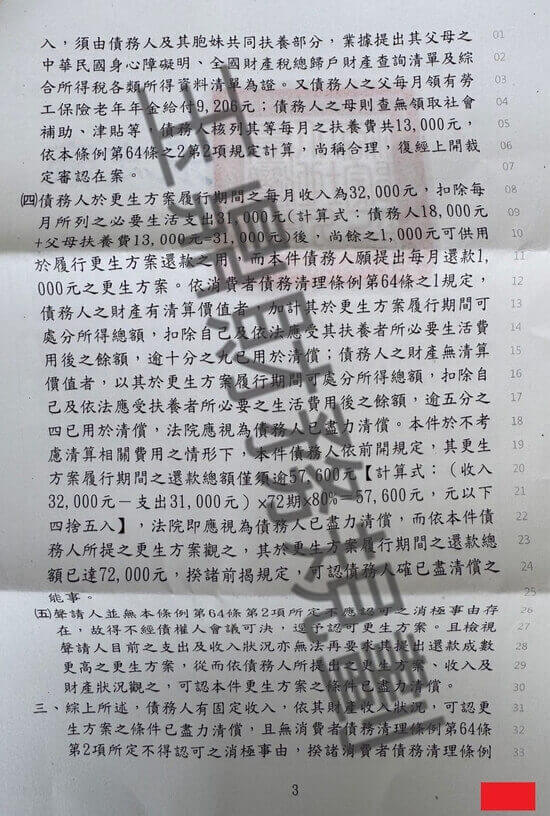 入，須由債務人及其胞妹共同扶養部分，業據提出其父母之 01
中華民國身心障礙明、全國財產稅總歸戶財產查詢清單及綜 02
合所得稅各類所得資料清單為證。又債務人之父每月領有勞 03
工保險老年年金給付9,206元；債務人之母則查無領取社會 04
補助、津貼等，債務人核列其等每月之扶養費共13,000元， 05
依本條例第64條之2第2項規定計算，尚稱合理，復經上開裁 06
定審認在案。 07
㈣債務人於更生方案履行期間之每月收入為32,000元，扣除每 08
月所列之必要生活支出31,000元(計算式：債務人18,000元 09
+父母扶養費13,000元=31,000元)後，尚餘之1,000元可供用 10
於履行更生方案還款之用，而本件債務人願提出每月還款1, 11
000元之更生方案。依消費者債務清理條例第64條之1規定， 12
債務人之財產有清算價值者，加計其於更生方案履行期間可 13
處分所得總額，扣除自己及依法應受其扶養者所必要生活費 14
用後之餘額，逾十分之九已用於清償；債務人之財產無清算 15
價值者，以其於更生方案履行期間可處分所得總額，扣除自 16
己及依法應受扶養者所必要之生活費用後之餘額，逾五分之 17
四已用於清償，法院應視為債務人已盡力清償。本件於不考 18
慮清算相關費用之情形下，本件債務人依前開規定，其更生 19
方案履行期間之還款總額僅須逾57,600元【計算式：（收入 20
32,000元－支出31,000元）×72期×80%＝57,600元，元以下 21
四捨五入】，法院即應視為債務人已盡力清償，而依本件債 22
務人所提之更生方案觀之，其於更生方案履行期間之還款總 23
額已達72,000元，揆諸前揭規定，可認債務人確已盡清償之 24
能事。 25
㈤聲請人並無本條例第64條第2項所定不應認可之消極事由存 26
在，故得不經債權人會議可決，逕予認可更生方案。且檢視 27
聲請人目前之支出及收入狀況亦無法再要求其提出還款成數 28
更高之更生方案，從而依債務人所提出之更生方案、收入及 29
財產狀況觀之，可認本件更生方案之條件已盡力清償。 30
三、綜上所述，債務人有固定收入，依其財產收入狀況，可認更 31
生方案之條件已盡力清償，且無消費者債務清理條例第64條 32
第2項所定不得認可之消極事由，揆諸消費者債務清理條例 33
3